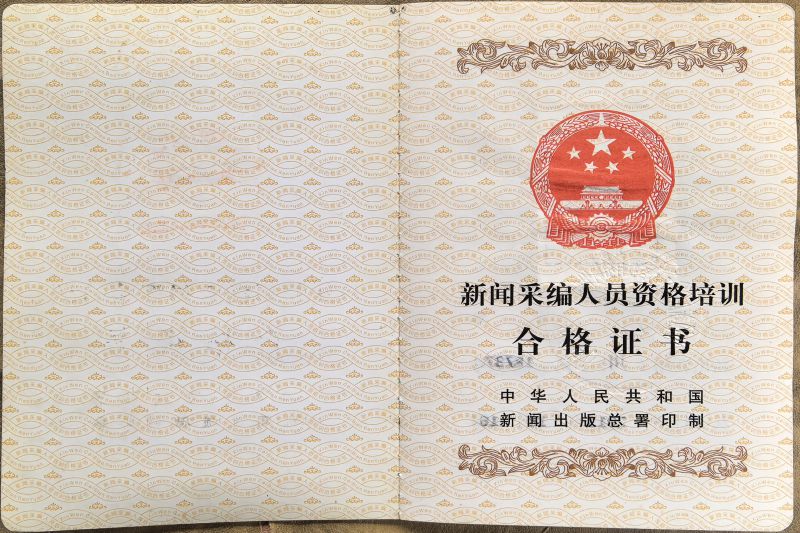 新闻采编人员资格培训
合格证书
中华人民共和国
新闻出版总署印制